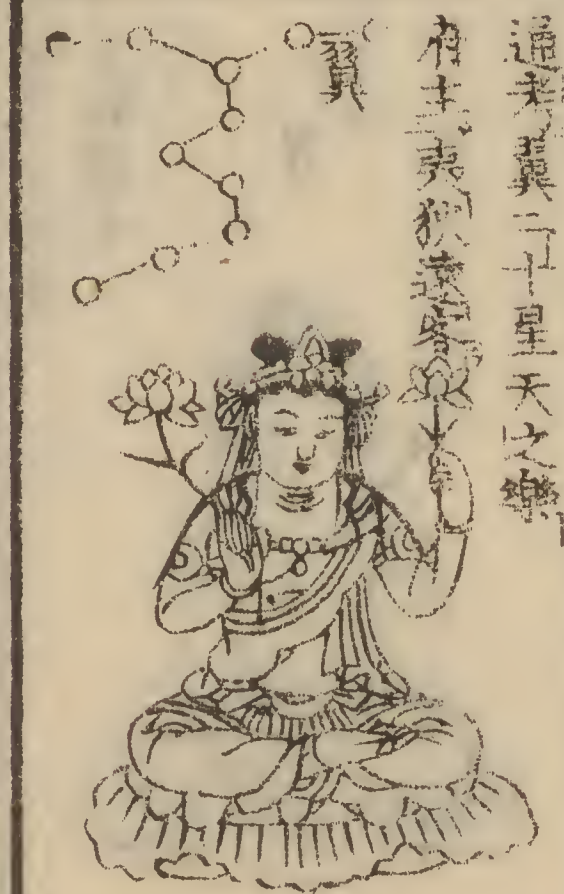 通考翼二十星天之樂
府主夷狄遠客
翼